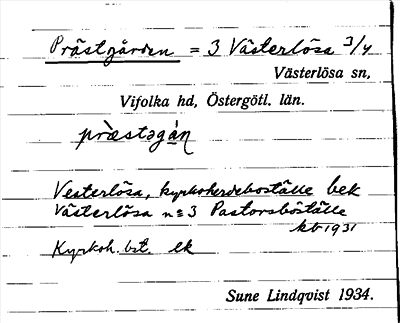 Prästgården = 3 Västerlösa 3/4
Västerlösa sn,
Vifolka hd, Östergötl. län.
præ̀stəgáɳ
Vesterlösa, kyrkoherdeboställe bek
Västerlösa n≗ 3 Pastorsboställe
kb 1931
Kyrkoh. bst. ek
Sune Lindqvist 1934.